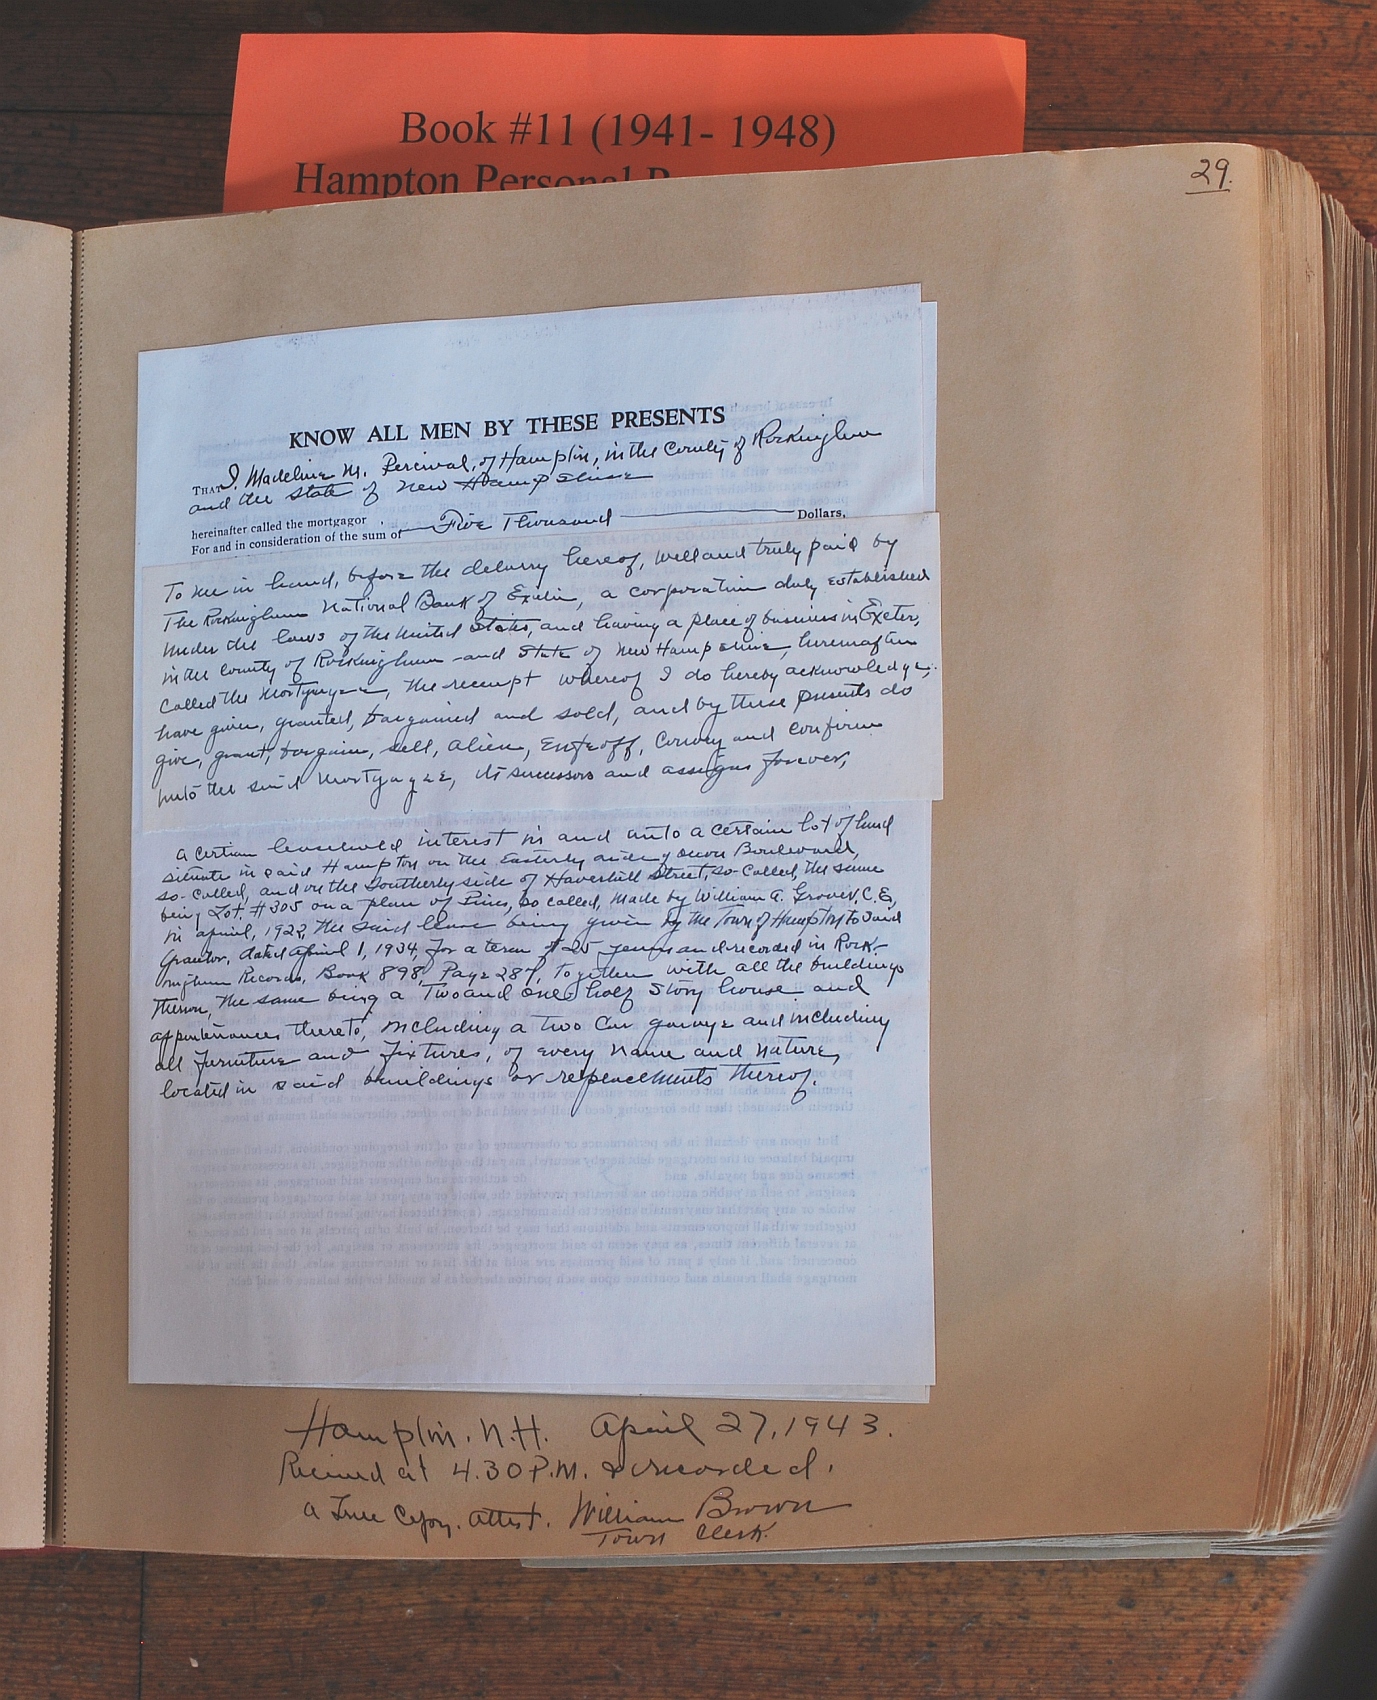 Book #11 (1941- 1948)
Hampton Personal
29.
KNOW ALL MEN BY THESE PRESENTS
THAT I, Madeline M. Percival, of Hampton, in the County of Rockingham
and the State of New Hampshire
hereinafter called the mortgagor
For and in consideration of the sum of Five Thousand Dollars,
To me in hand, before the delivery hereof, well and truly paid by
The Rockingham National Bank of Exeter, a corporation duly established
under the laws of the United States, and having a place of business in Exeter,
in the County of Rockingham and State of New Hampshire, hereinafter
called the Mortgagee, the receipt whereof I do hereby acknowledge,
have given, granted, bargained and sold, and by these presents do
give, grant, bargain, sell, alien, enfeoff, convey and confirm
unto the said Mortgagee, its successors and assigns forever,
a certian leasehold interest in and unto a certain lot of land
situate in said Hampton on the Easterly side of Ocean Boulevard,
so-called, and on the Southerly side of Haverhill Street, so-called, the same
being Lot #305 on a plan of Pines, so called, made by William A. Grover, C.E.,
in April, 1922, the said lease being given by the Town of Hampton to said
Grantor, dated April 1, 1934, for a term of 25 years and recorded in Rock-
ingham Records, Book 898, Page 287, together with all the buildings
thereon, the same being a Two and one half story house and
appurtenances thereto, including a two car garage and including
all furniture and fixtures, of every name and nature,
located in said buildings or replacements thereof.
Hampton. N.H. April 27, 1943.
Received at 4.30 P.M. & recorded.
A True Copy. Attest. William Brown
Town Clerk.